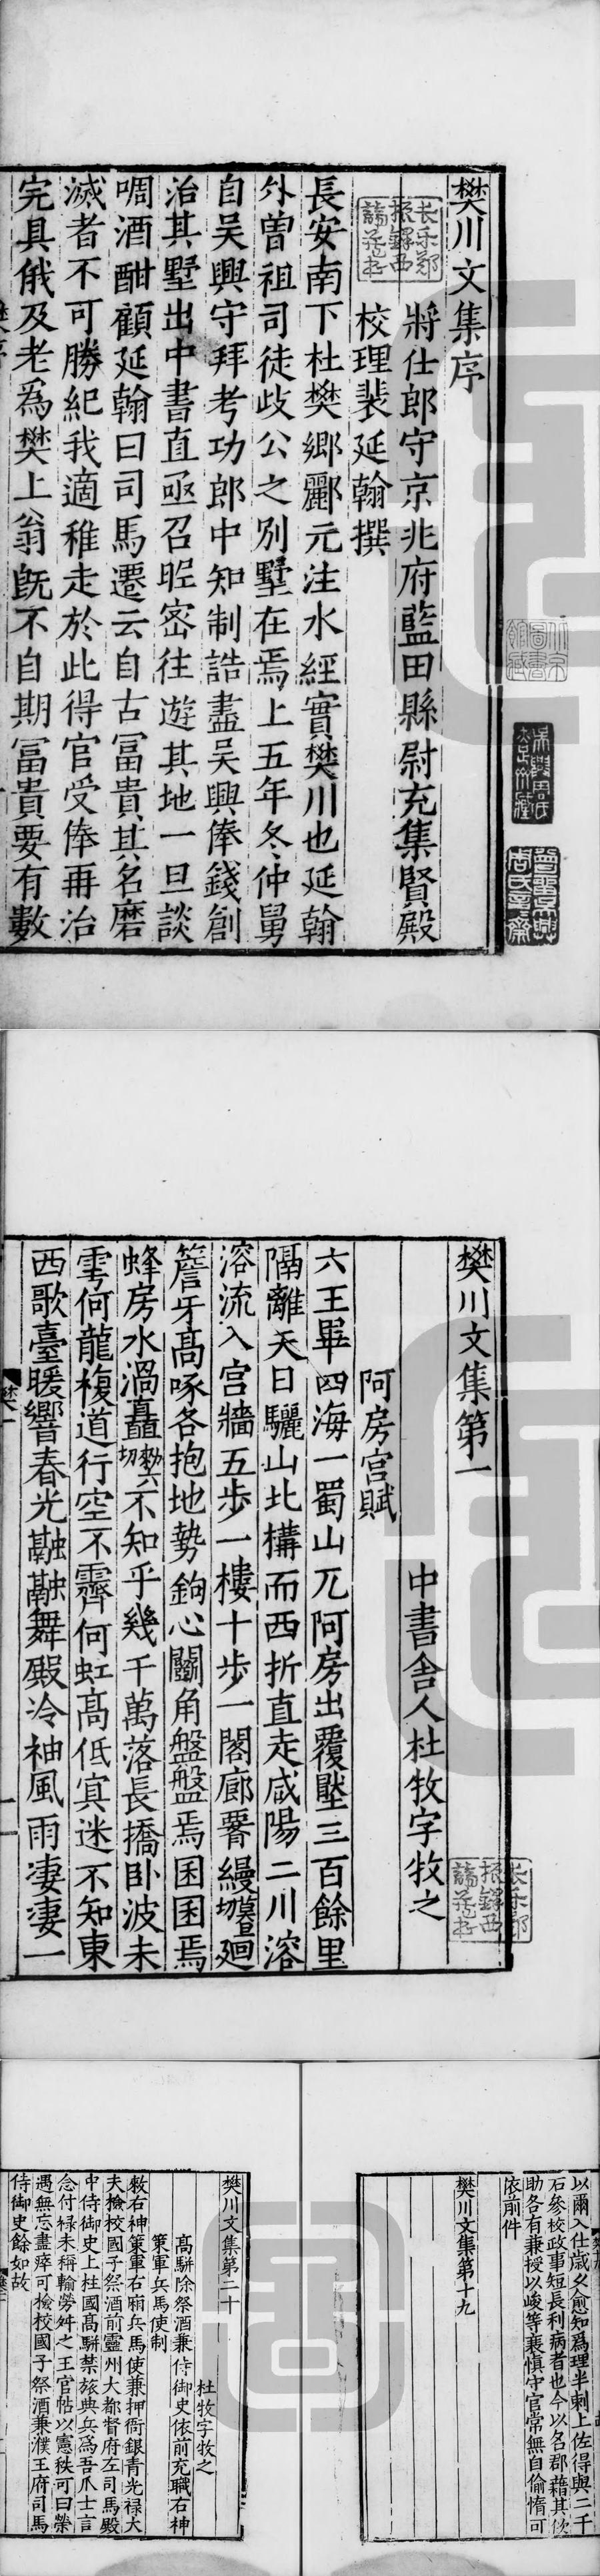 樊川文集序
將仕郎守京兆府藍田縣尉充集賢殿
校理裴延翰撰
長安南下杜樊鄉酈元注水經實樊川也延翰
外曾祖司徒歧公之別墅在焉上五年冬仲舅
自吳興守拜考功郎中知制誥盡吳興俸錢創
治其墅出中書直亟召昵密往遊其地一旦談
啁酒酣顧延翰曰司馬遷云自古富貴其名磨
滅者不可勝紀我適稚走於此得官受俸再治
完具俄及老爲樊上翁旣不自期冨貴要有數
长乐郑
振鐸西
諦藏书
樊川文集第一
中書舍人杜牧字牧之
阿房宫賦
六王畢四海一蜀山兀阿房出覆壓三百餘里
隔離天日驪山北構而西折直走咸陽二川溶
溶流入宫牆五步一樓十步一閣廊署縵切莫半廻
簷牙髙啄各抱地勢鉤心鬭角盤盤焉囷囷焉
蜂房水渦矗勑六切不知乎幾千萬落長橋卧波未
雩何龍複道行空不霽何虹髙低㝠迷不知東
西歌臺暖響春光融融舞殿冷袖風雨凄凄一
长乐郑
振鐸西
諦藏书
以爾入仕歲久愈知爲理半刺上佐得與二千
石參校政事短長利病者也今以名郡藉其
助各有兼授以峻等衰慎守官常無自偷惰可
依前件
樊川文集第十九
樊川文集第二十
杜牧字牧之
髙駢除祭酒兼侍御史依前充職右神
策軍兵馬使制
敕右神策軍右廂兵馬使兼押衙銀青光禄大
夫檢校國子祭酒前靈州大都督府左司馬殿
中侍御史上柱國髙駢禁旅典兵爲吾爪士言
念付禄未稱輸勞舛之王官帖以憲秩可曰榮
遇無忘盡瘁可檢校國子祭酒兼濮王府司馬
侍御史餘如故